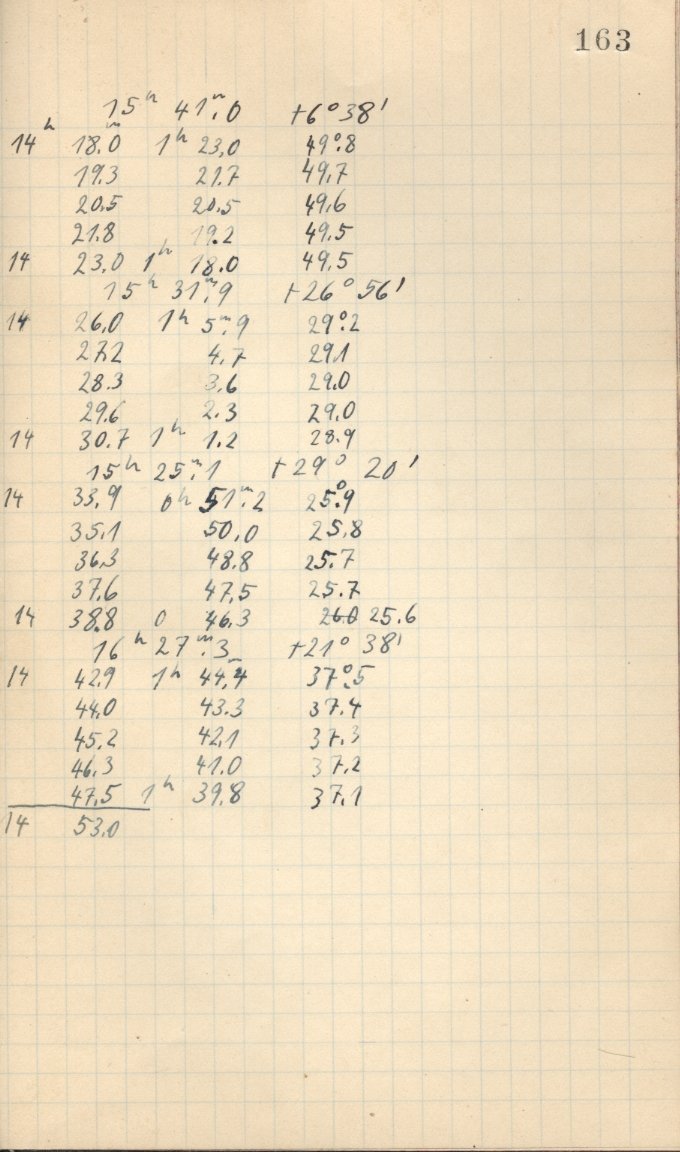 163
15ʰ 41ᵐ.0 +6°38'
14ʰ 18ᵐ.0 1ʰ 23,0 49°.8
19.3 21.7 49,7
20,5 20,5 49,6
21.8 19.2 49.5
14 23.0 1ʰ 18.0 49.5
15ʰ 31ᵐ.9 +26° 56'
14 26,0 1ʰ 5ᵐ.9 29°.2
27.2 4.7 29.1
28.3 3,6 29,0
29.6 2.3 29,0
14 30.7 1ʰ 1.2 28.9
15ʰ 25ᵐ.1 +29° 20'
14 33,9 0ʰ 51ᵐ.2 25°.9
35,1 50,0 25,8
36,3 48.8 25.7
37,6 47,5 25.7
14 38.8 0 46.3 26.0 25.6
16ʰ 27ᵐ.3 +21° 38'
14 42,9 1ʰ 44ᵐ.4 37°.5
44,0 43.3 37.4
45.2 42,1 37.3
46,3 41.0 37,2
47,5 1ʰ 39,8 37,1
14 53,0